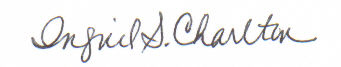 Ingrid S. Charlton